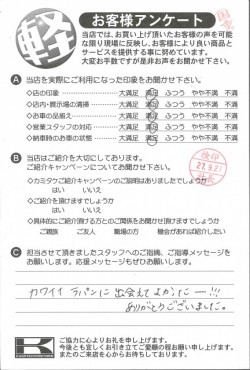 軽
お客様アンケート
当店では、お買い上げ頂いたお客様の声を可能
な限り現場に反映し、お客様により良い商品と
サービスを提供する為に努めています。
大変お手数ですが是非お声をお聞かせ下さい。
A 当店を実際にご利用になった印象をお聞かせ下さい。
◇店の印象 大満足 満足 ふつう やや不満 不満
◇店内・展示場の清掃 大満足 満足 ふつう やや不満 不満
◇お車の品揃え 大満足 満足 ふつう やや不満 不満
◇営業スタッフの対応 大満足 満足 ふつう やや不満 不満
◇納車時のお車の状態 大満足 満足 ふつう やや不満 不満
B 当店はご紹介を大切にしております。
ご紹介キャンペーンについてお聞かせ下さい。
◇カミタケご紹介キャンペーンのご説明はありましたでしょうか
はい いいえ
◇ご紹介を頂けますでしょうか
はい いいえ
◇具体的にご紹介頂ける方とのご関係をお聞かせ頂けますでしょうか
ご親族 ご友人 職場の方 機会があれば紹介したい
C 担当させて頂きましたスタッフへのご指摘、ご指導メッセージを
お願いします。応援メッセージもぜひお願いします。
カワイイ ラパンに出会えてよかったー!!!
ありがとうございました。
K
ご協力に心よりお礼を申し上げます。
今後とも宜しくお引き立てご愛顧の程お願い申し上げます。
またのご来店を心からお待ちしております。